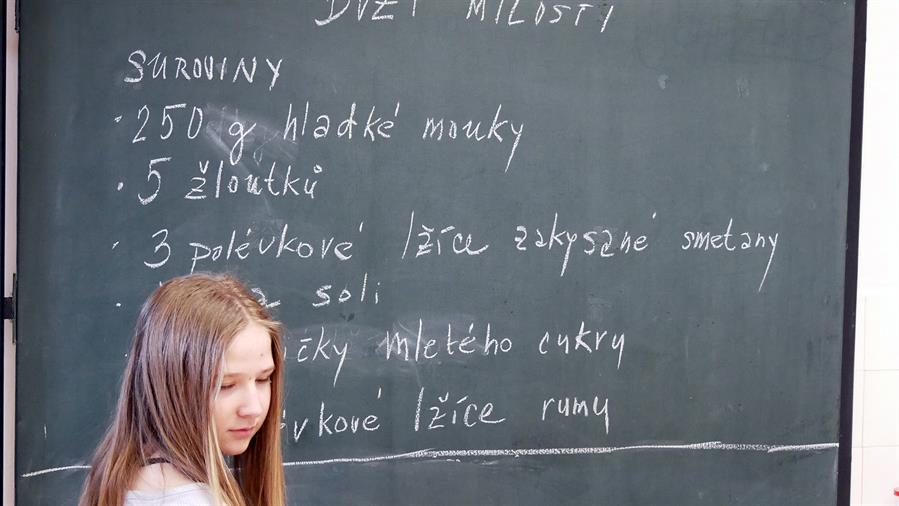 BOŽÍ MILOSTI
SUROVINY
· 250 g hladké mouky
· 5 žloutků
· 3 polévkové lžíce zakysané smetany
· soli
· mletého cukru
lžíce rumu